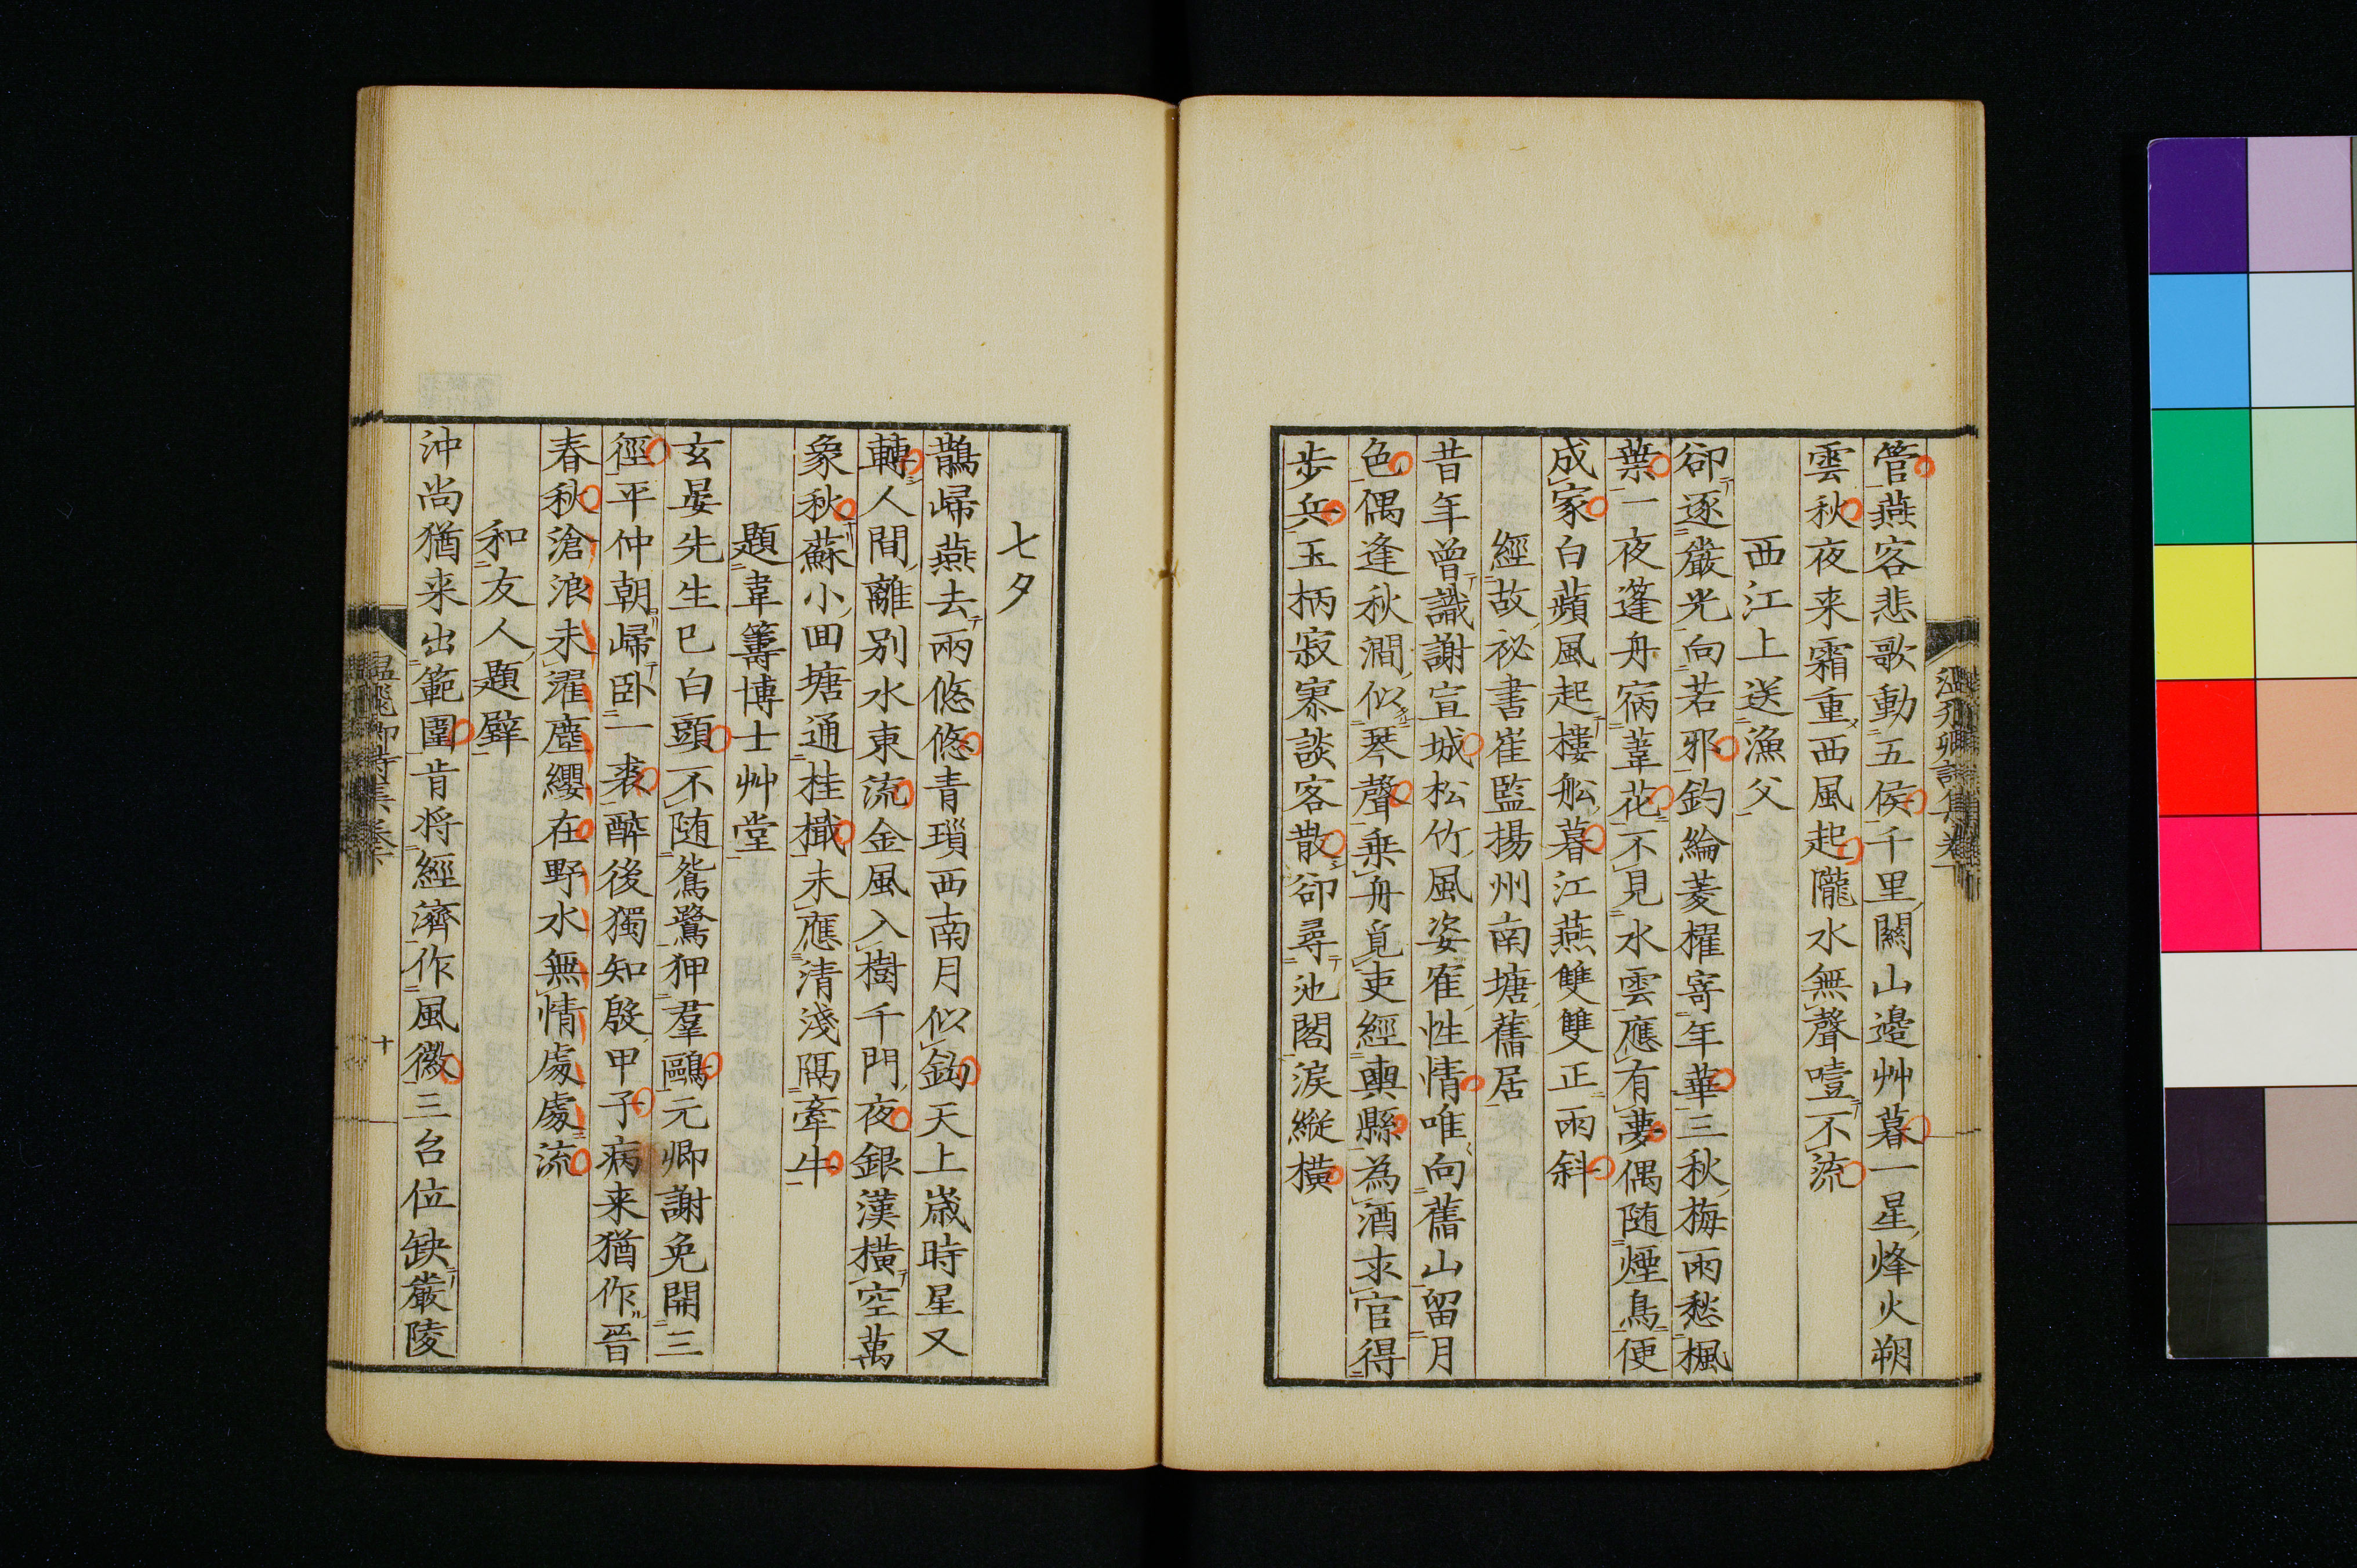 管燕客悲歌動五侯千里關山邉艸暮一星烽火朔
雲秋夜来霜重西風起隴水無聲噎不流
西江上送漁父
卻逐嚴光向若邪釣綸菱櫂寄年華三秋梅雨愁楓
葉一夜篷舟宿葦花不見水雲應有夢偶随煙鳥便
成家白蘋風起樓舩暮江燕雙雙正雨斜
經故祕書崔監揚州南塘舊居
昔年曾識謝宣城松竹風姿隺性情唯向舊山留月
色偶逢秋澗似琴聲乗舟覓吏經輿縣為酒求官得
步兵玉柄寂寥談客散卻尋池閣淚縱橫
七夕
鵲歸燕去兩悠悠青瑣西南月似鈎天上歳時星又
轉人間離别水東流金風入樹千門夜銀漢横空萬
象秋蘇小囬塘通桂檝未應清淺隔牽牛
題韋籌博士艸堂
玄晏先生巳白頭不随鴛鷺狎羣鷗元卿謝免開三
徑平仲朝歸卧一裘醉後獨知殷甲子病来猶作晉
春秋滄浪未濯塵纓在野水無情處處流
和友人題壁
沖尚猶来出範圍肯将經濟作風徽三台位缺嚴陵
温飛卿詩集卷下
十